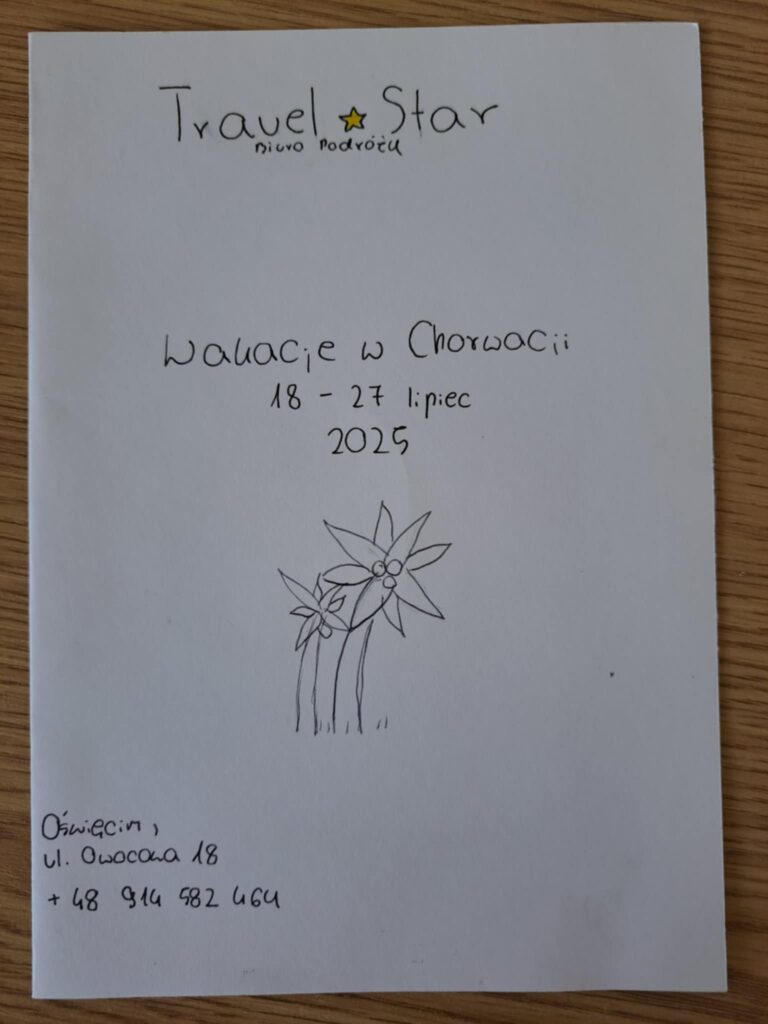 Travel Star
Biuro Podróży
Wakacje w Chorwacji
18 - 27 lipiec
2025
Oświęcim,
ul. Owocowa 18
+ 48 914 582 464